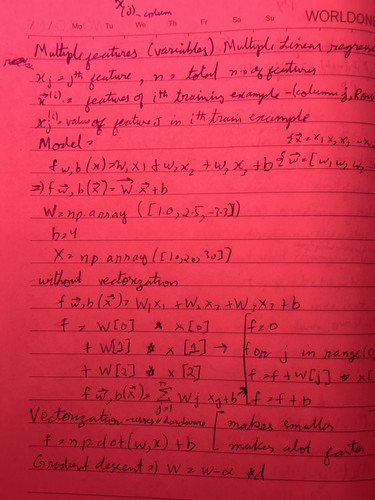 x
(j)-colum
Mo Tu We Th Fr Sa Su WORLDON
Multiple features (variables) Multiple Linear regress
xj = jth feature, n = total no. of features
x⃗(i) = features of ith training example - (column j, Row
xj(i) = value of feature j in ith train example
Model = {x⃗ = x1, x2, x3 ...
fw,b(x) = w1 x1 + w2 x2 + w3 x3 + b {w⃗ = [w1 w2 w3 ...
=) f w⃗,b(x⃗) = w⃗ x⃗ + b
W = np.array ([1.0, 2.5, -3.3])
b = 4
X = np.array ([10, 20, 30])
without vectorization
f w⃗,b(x⃗) = W1 X1 + W2 X2 + W3 X3 + b
f = W[0] * X[0] f = 0
+ W[1] * X[1] → for j in range(0,
+ W[2] * X[2] f = f + W[j] * X[
f w⃗,b(x⃗) = n Σ j=1 Wj Xj + b f = f + b
Vectorization - uses hardware makes smaller
f = np.dot(w,x) + b makes alot faster
Gradient descent =) W = W - α * d